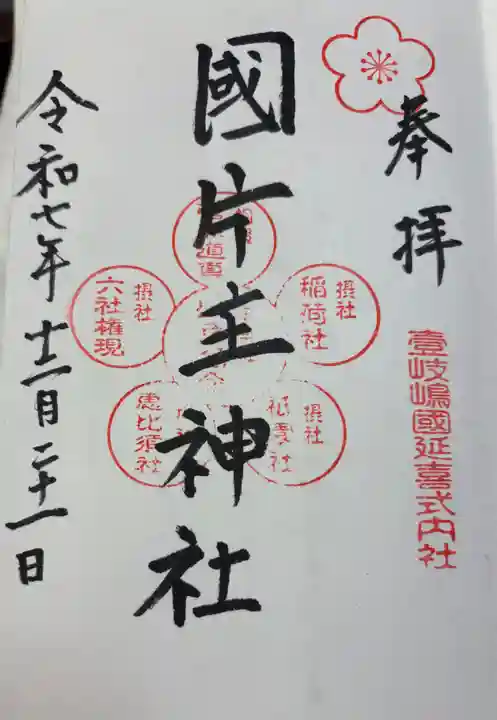 奉拝
壹岐嶋國延喜式内社
國片主神社
摂社
稲荷社
摂社
祇園社
恵比須社
摂社
六社権現
令和七年十二月二十一日